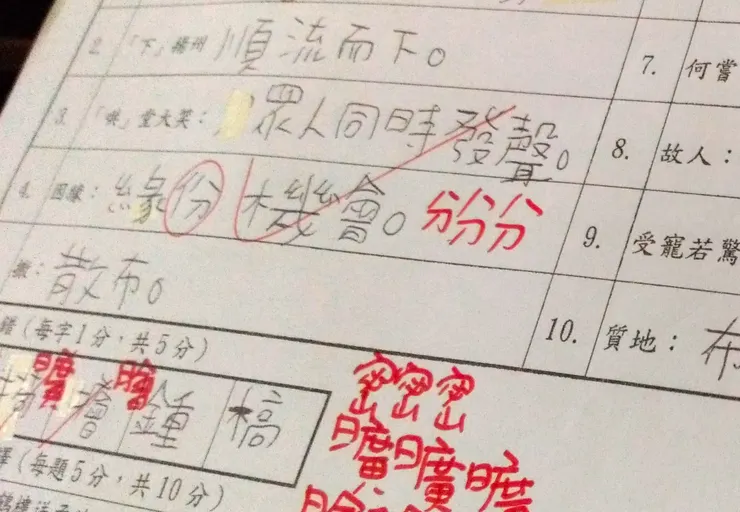 2. 「下」揚州 順流而下。
7. 何嘗
3. 「哄」堂大笑: 眾人同時發聲。
8. 故人:
4. 因緣: 緣份 機會。 分分分
9. 受寵若驚
散布。
10. 質地: 布
錯(每字1分,共5分)
曠 膾 密密密
鍾 槁 曠曠曠
(每題5分,共10分)